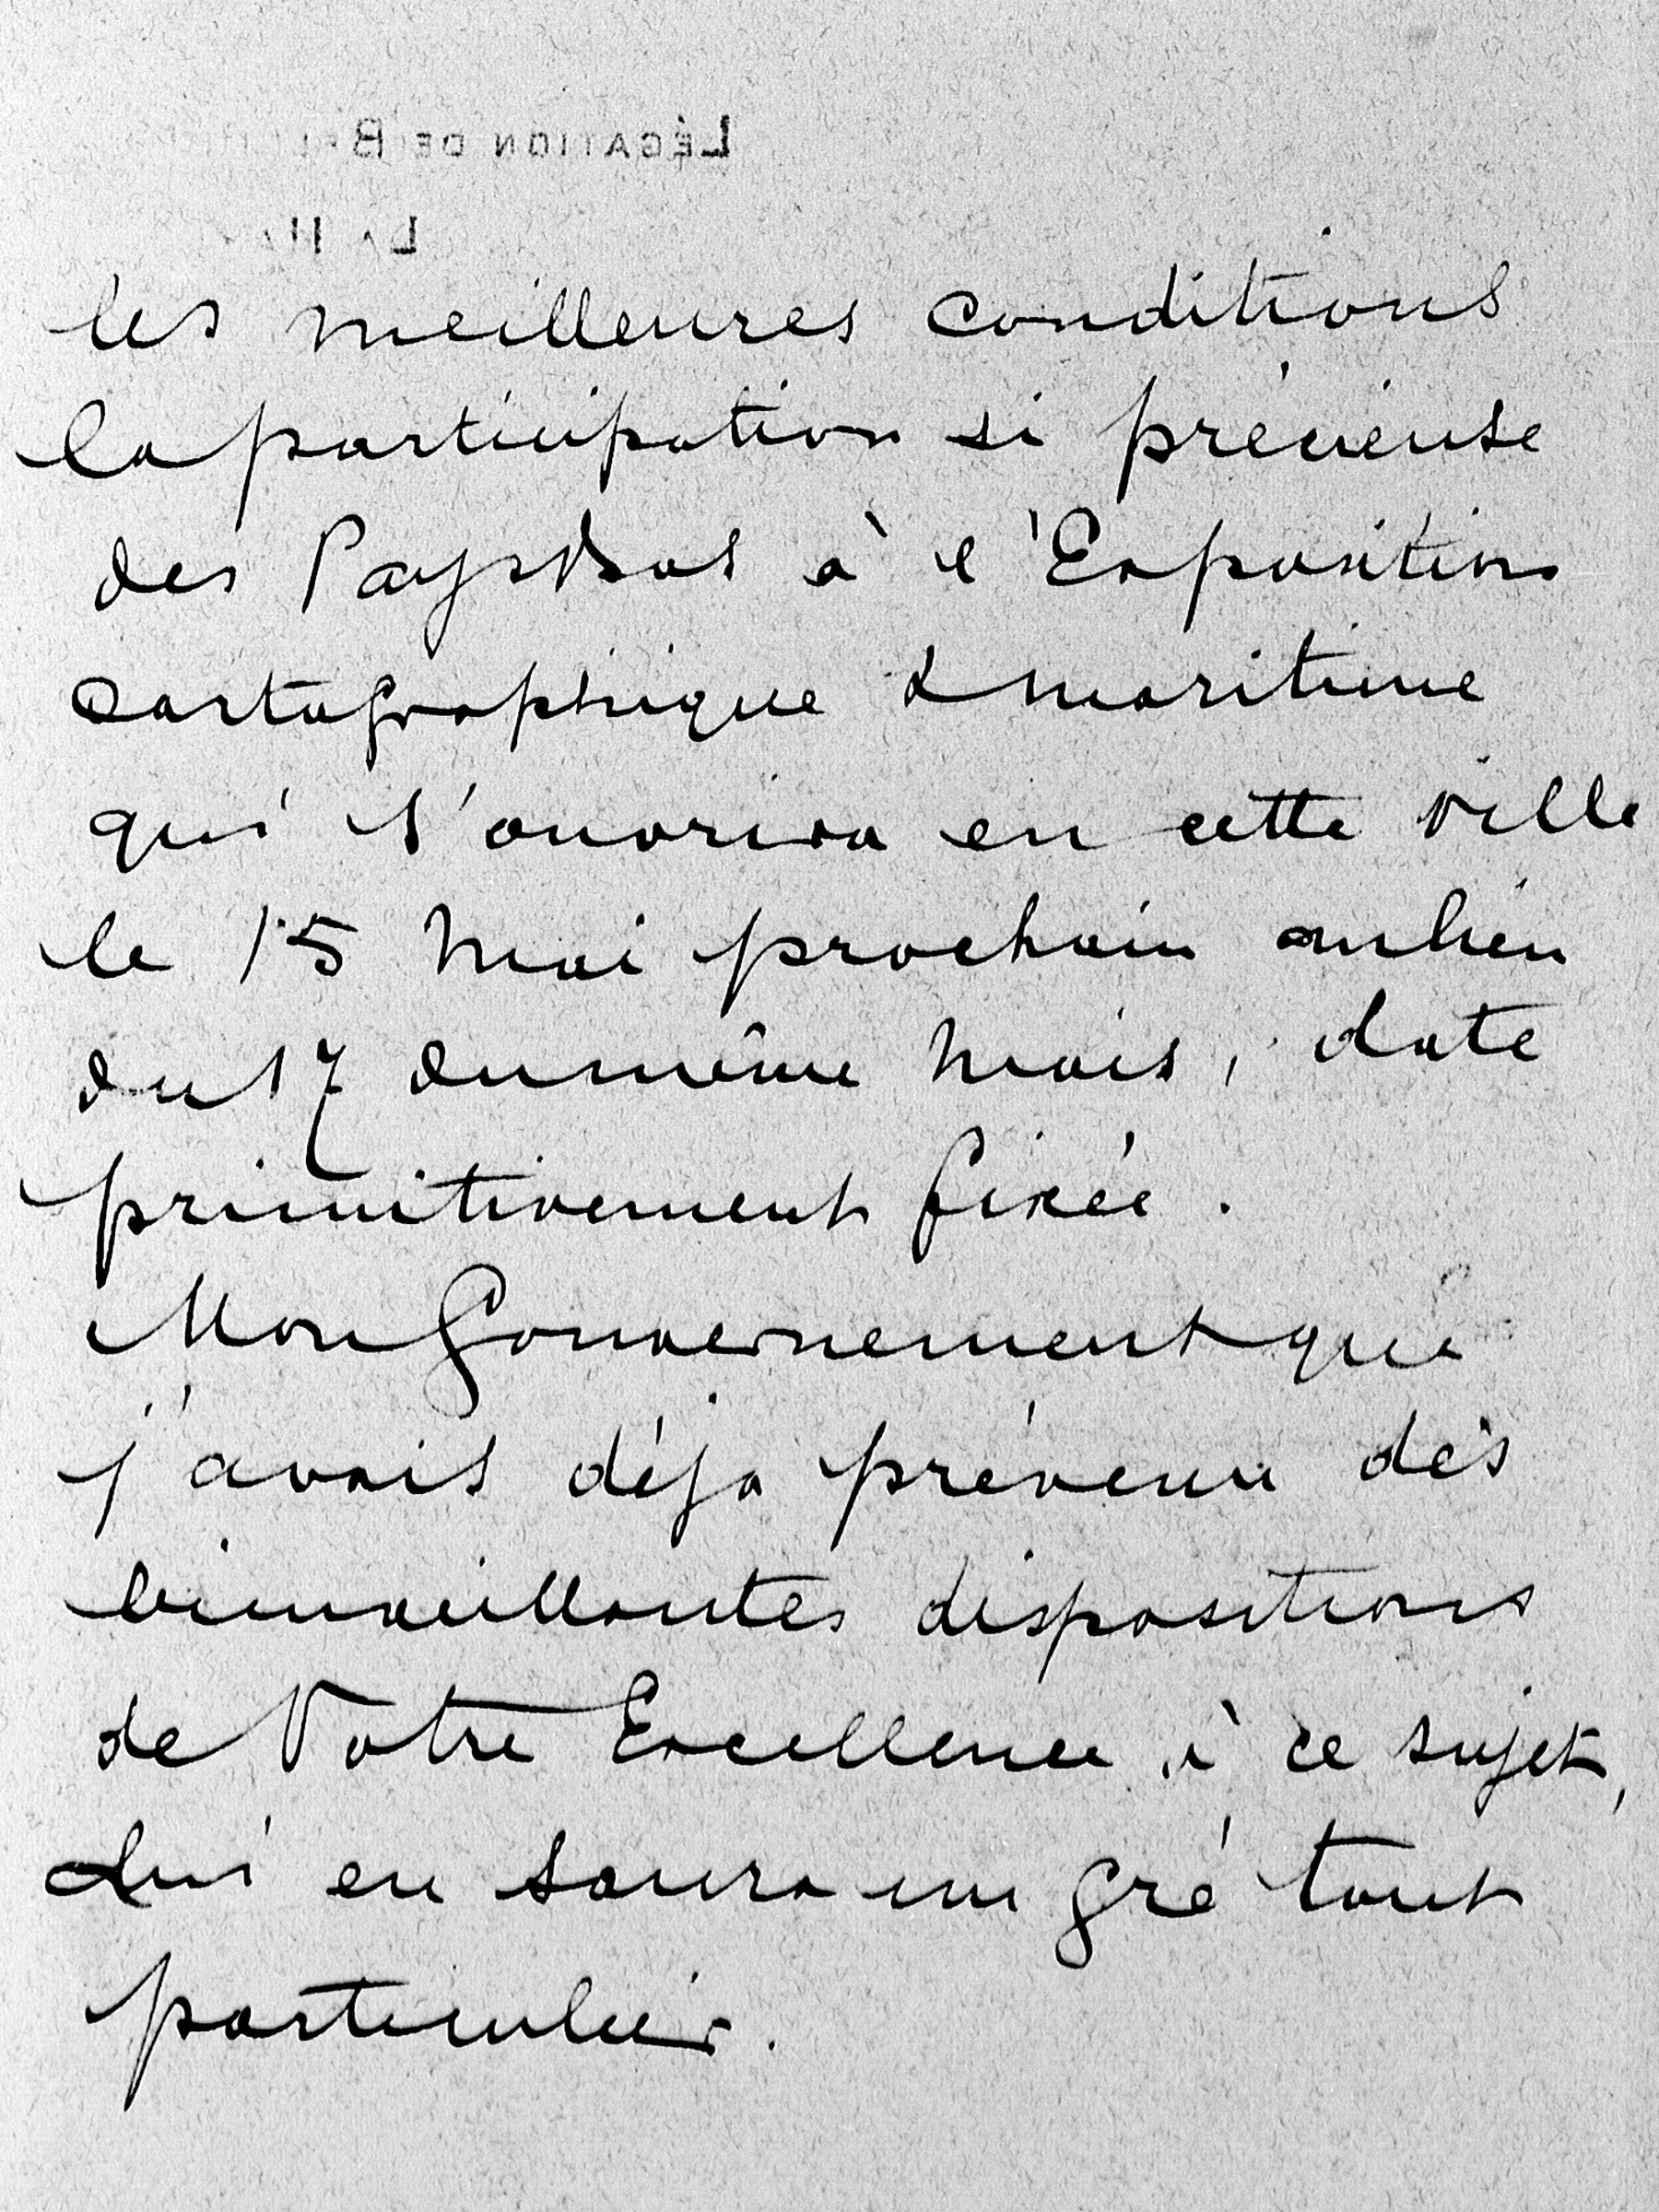 LÉGATION DE B
LA HA
les meilleures conditions
la participation si précieuse
des Pays Bas à l'Exposition
cartographique & maritime
qui s'ouvrira en cette ville
le 15 Mai prochain au lieu
du 17 du même mois, date
primitivement fixée.
Mon Gouvernement que
j'avais déjà prévenu des
bienveillantes dispositions
de Votre Excellence à ce sujet,
Lui en saura un gré tout
particulier.